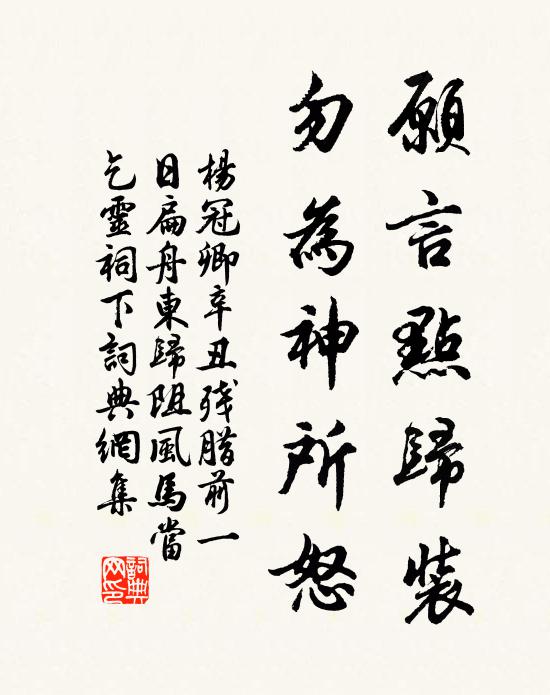 願言點歸裝
勿為神所怒
楊冠卿辛丑殘腊前一
日扁舟東歸阻風馬當
乞靈祠下詞典網集
詞典网印